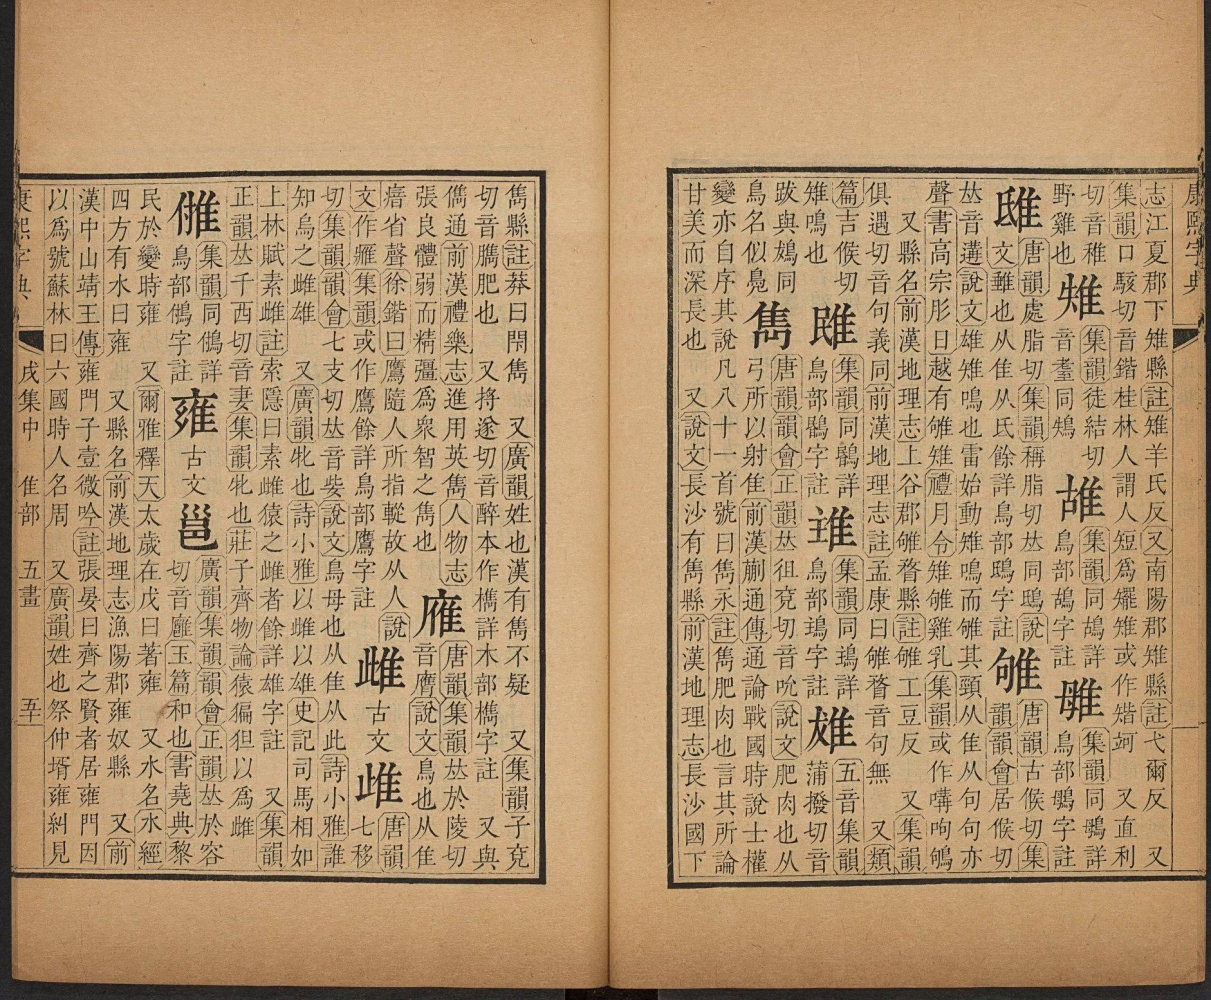 志江夏郡下雉縣註雉羊氏反又南陽郡雉縣註弋爾反 又
集韻口駭切音鍇桂林人謂人短爲雉或作 又直利
切音稚 集韻徒結切 集韻同鴣詳 集韻同鴞詳
野雞也 音耊同鴙 鳥部鴣字註 鳥部鴞字註
雎 唐韻處脂切集韻稱脂切𠀤同鴟說 雊 唐韻古候切集
文雖也从隹从氐餘詳鳥部鴟字註 韻韻會居候切
𠀤音遘說文雄雉鳴也雷始動雉鳴而雊其頸从隹从句句亦
聲書高宗肜日越有雊雉禮月令雉雊雞乳集韻或作呴鴝
 又縣名前漢地理志上谷郡雊瞀縣註雊工豆反 又集韻
俱遇切音句義同前漢地理志註孟康曰雊瞀音句無 又類
篇吉候切 集韻同鶻詳 集韻同鳿詳 五音集韻
雉鳴也 鳥部鶻字註 鳥部鳿字註 蒲撥切音
跋與鴔同 雋 唐韻韻會正韻𠀤徂兗切音吮說文肥肉也从
鳥名似鳧 弓所以射隹前漢蒯通傳通論戰國時說士權
變亦自序其說凡八十一首號曰雋永註雋肥肉也言其所論
甘美而深長也 又說文長沙有雋縣前漢地理志長沙國下
雋縣註莽曰閏雋 又廣韻姓也漢有雋不疑 又集韻子兗
切音臇肥也 又將遂切音醉本作檇詳木部檇字註 又與
儁通前漢禮樂志進用英雋人物志 䧹 唐韻集韻𠀤於陵切
張良體弱而精彊爲衆智之雋也 音膺說文鳥也从隹
瘖省聲徐鍇曰鷹隨人所指䡮故从人說 雌 古文 雌 唐韻
文作䧹集韻或作鷹餘詳鳥部鷹字註 七移
切集韻韻會七支切𠀤音姕說文鳥母也从隹从此詩小雅誰
知烏之雌雄 又廣韻牝也詩小雅以雌以雄史記司馬相如
上林賦素雌註索隱曰素雌猿之雌者餘詳雄字註 又集韻
正韻𠀤千西切音妻集韻牝也莊子齊物論猿猵狙以爲雌
集韻同鵂詳 雍 古文 邕 廣韻集韻韻會正韻𠀤於容
鳥部鵂字註 切音廱玉篇和也書堯典黎
民於變時雍 又爾雅釋天太歲在戊曰著雍 又水名水經
四方有水曰雍 又縣名前漢地理志漁陽郡雍奴縣 又前
漢中山靖王傳雍門子壹微吟註張晏曰齊之賢者居雍門因
以爲號蘇林曰六國時人名周 又廣韻姓也祭仲壻雍糾見
康熙字典 戌集中 隹部 五畫 五十